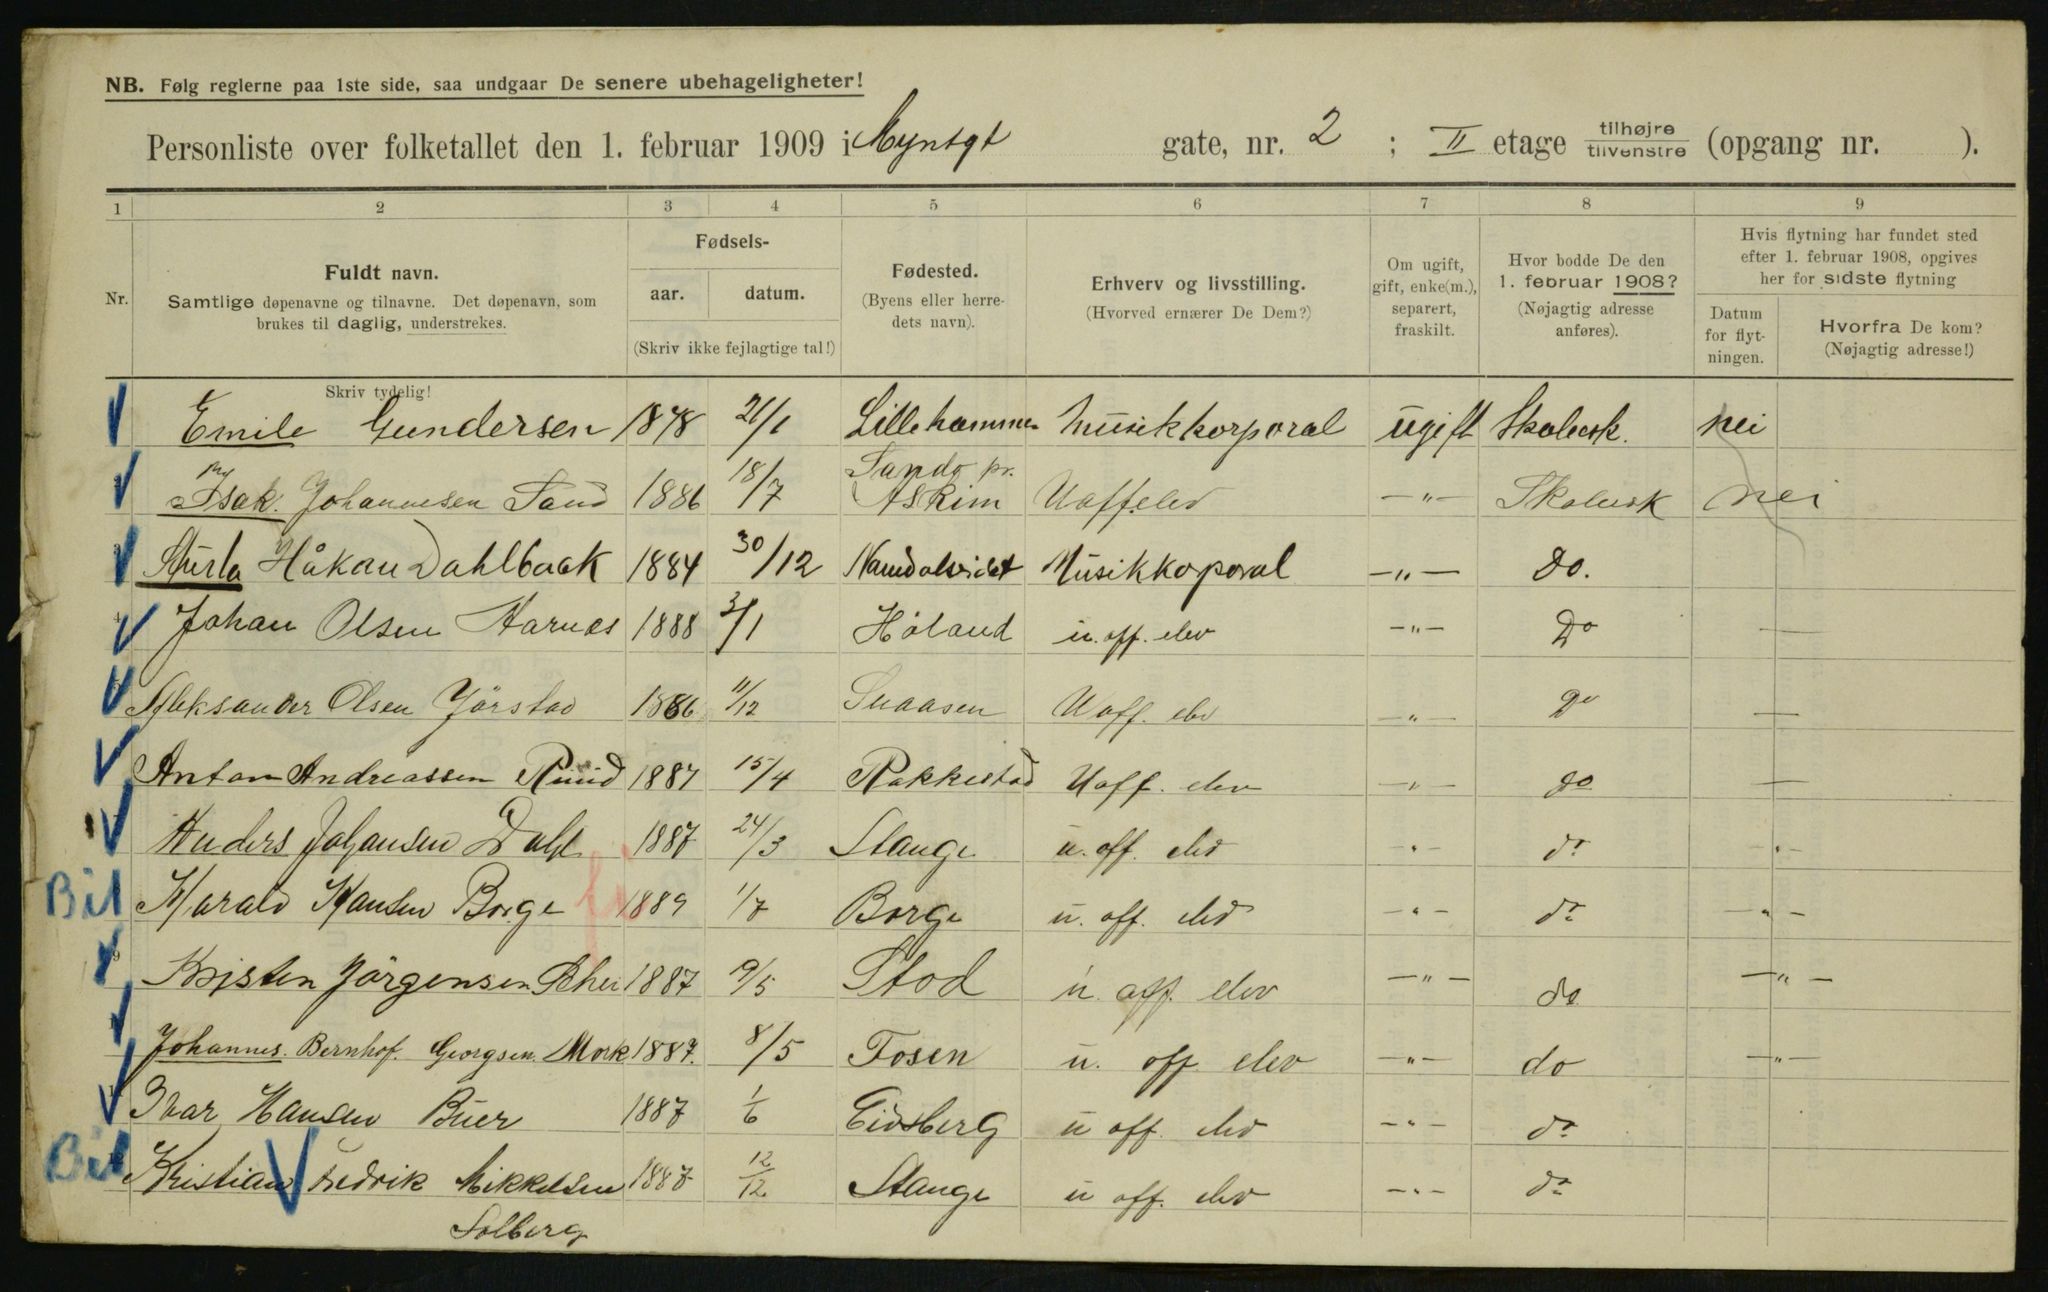 NB. Følg reglerne paa 1ste side, saa undgaar De senere ubehageligheter!
Personliste over folketallet den 1. februar 1909 i Myntgt gate, nr. 2 ; II etage tilhøjre tilvenstre (opgang nr. ).
1 2 3 4 5 6 7 8 9
Nr. Fuldt navn. Samtlige døpenavne og tilnavne. Det døpenavn, som brukes til daglig, understrekes.
Fødsels- aar. datum. (Skriv ikke fejlagtige tal!)
Fødested. (Byens eller herredets navn).
Erhverv og livsstilling. (Hvorved ernærer De Dem?)
Om ugift, gift, enke(m.), separert, fraskilt.
Hvor bodde De den 1. februar 1908? (Nøjagtig adresse anføres).
Hvis flytning har fundet sted efter 1. februar 1908, opgives her for sidste flytning
Datum for flytningen. Hvorfra De kom? (Nøjagtig adresse!)
Skriv tydelig!
Emile Gundersen 1878 21/1 Lillehammer Musikkorporal ugift Skolensk. nei
Isak Johannesen Sand 1886 18/7 Askim Uoff.elev —"— Skolensk nei
Sturla Håkan Dahlback 1884 30/12 Namdalseidet Musikkorporal —"— Do.
Johan Olsen Harnes 1888 3/1 Høland u. off. elev —"— Do —
Aleksander Olsen Jörstad 1886 11/12 Snaasen Uoff. elev —"— Do —
Anton Andreassen Ruud 1887 15/4 Rakkestad Uoff. elev —"— do —
Anders Johansen Dahl 1887 24/3 Stange u. off. elev —"— do —"—
Bil Harald Hansen Borge 1889 1/7 Borge u. off. elev —"— do —"—
Kristen Jörgensen 1887 9/5 Stod u. off. elev —"— do —"—
Johannes Bernhof. Georgsen Mork 1887. 8/5 Fosen u. off elev —"— do —"—
Ivar Hansen Buer 1887 1/6 Eidsberg u off. elev —"— do
Bil Kristian Fredrik Mikkelsen 1887 12/12 Stange u off. elev —"— do
Solberg